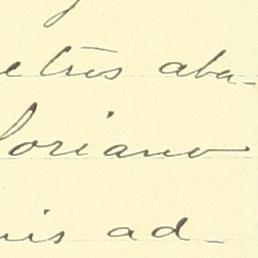 etris aba-
loriano
nis ad-